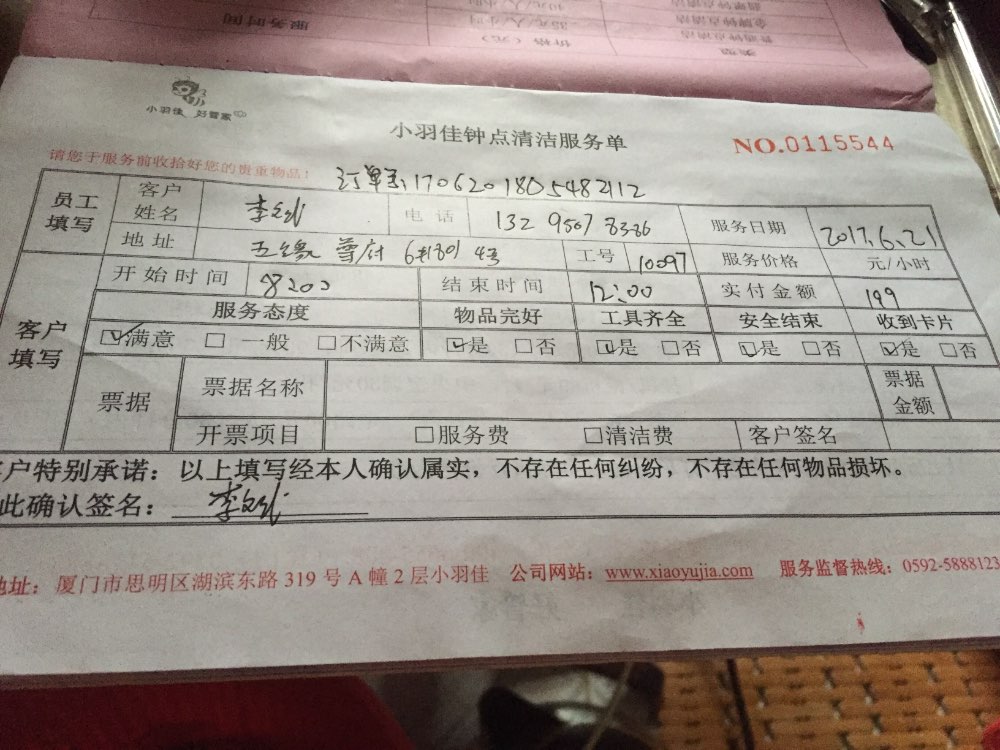 小羽佳 好管家
小羽佳钟点清洁服务单
NO.0115544
请您于服务前收拾好您的贵重物品!
订单号:1706201805482112
员工填写 客户姓名 李 电话 服务日期 2017.6.21
地址 五缘尊府 工号 10097 服务价格 元/小时
客户填写 开始时间 8:00 结束时间 12:00 实付金额 199
服务态度 物品完好 工具齐全 安全结束 收到卡片
☑满意 □一般 □不满意 ☑是 □否 ☑是 □否 ☑是 □否 ☑是 □否
票据 票据名称 票据金额
开票项目 □服务费 □清洁费 客户签名
客户特别承诺:以上填写经本人确认属实,不存在任何纠纷,不存在任何物品损坏。
此确认签名: 李
地址:厦门市思明区湖滨东路319号A幢2层小羽佳 公司网站:www.xiaoyujia.com 服务监督热线:0592-5888123